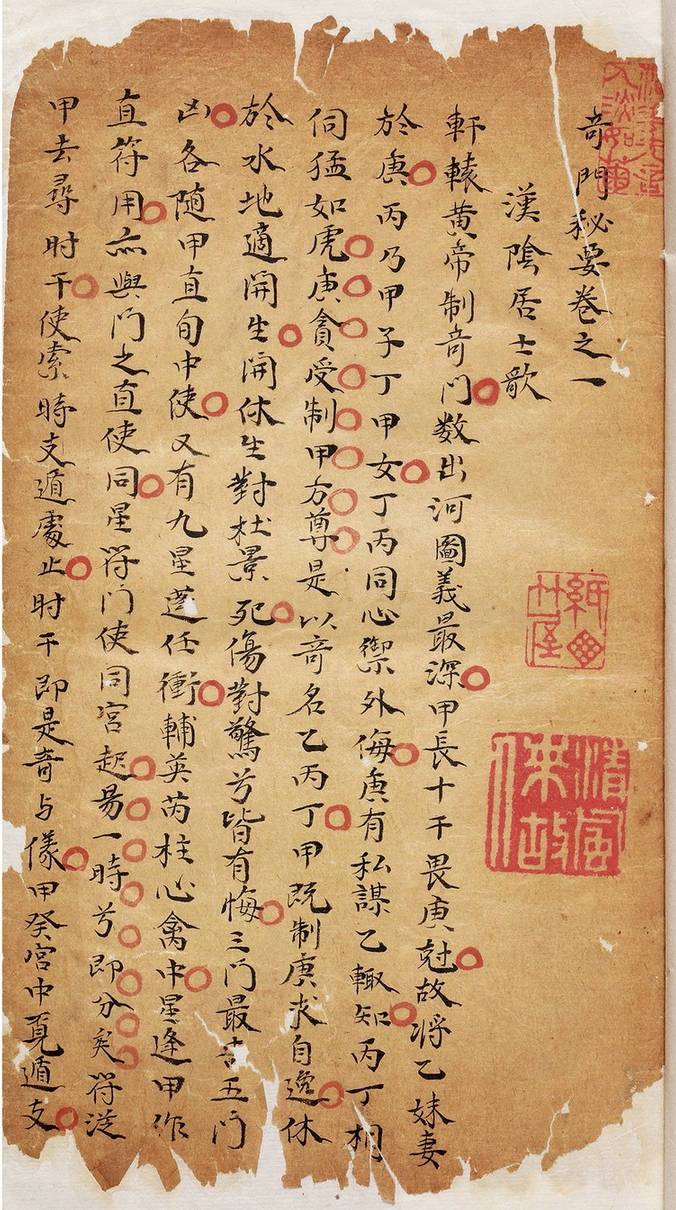 奇門秘要卷之一
漢陰居士歌
軒轅黃帝制奇門数出河圖義最深甲長十干畏庚尅故将乙妹妻
於庚丙乃甲子丁甲女丁丙同心禦外侮庚有私謀乙輙知丙丁相
伺猛如虎庚貪受制甲方尊是以奇名乙丙丁甲既制庚求自逸休
於水地適開生開休生對杜景死傷對驚兮皆有悔三门最吉五门
凶各随甲直旬中使又有九星蓬任衝輔英芮柱心禽中星逢甲作
直符用亦與门之直使同星符门使同宫起昜一時兮即分矣符从
甲去尋时干使索時支遁處止时干即是奇与儀甲癸宫中覓遁支
紙
竹屋
清風
來故人